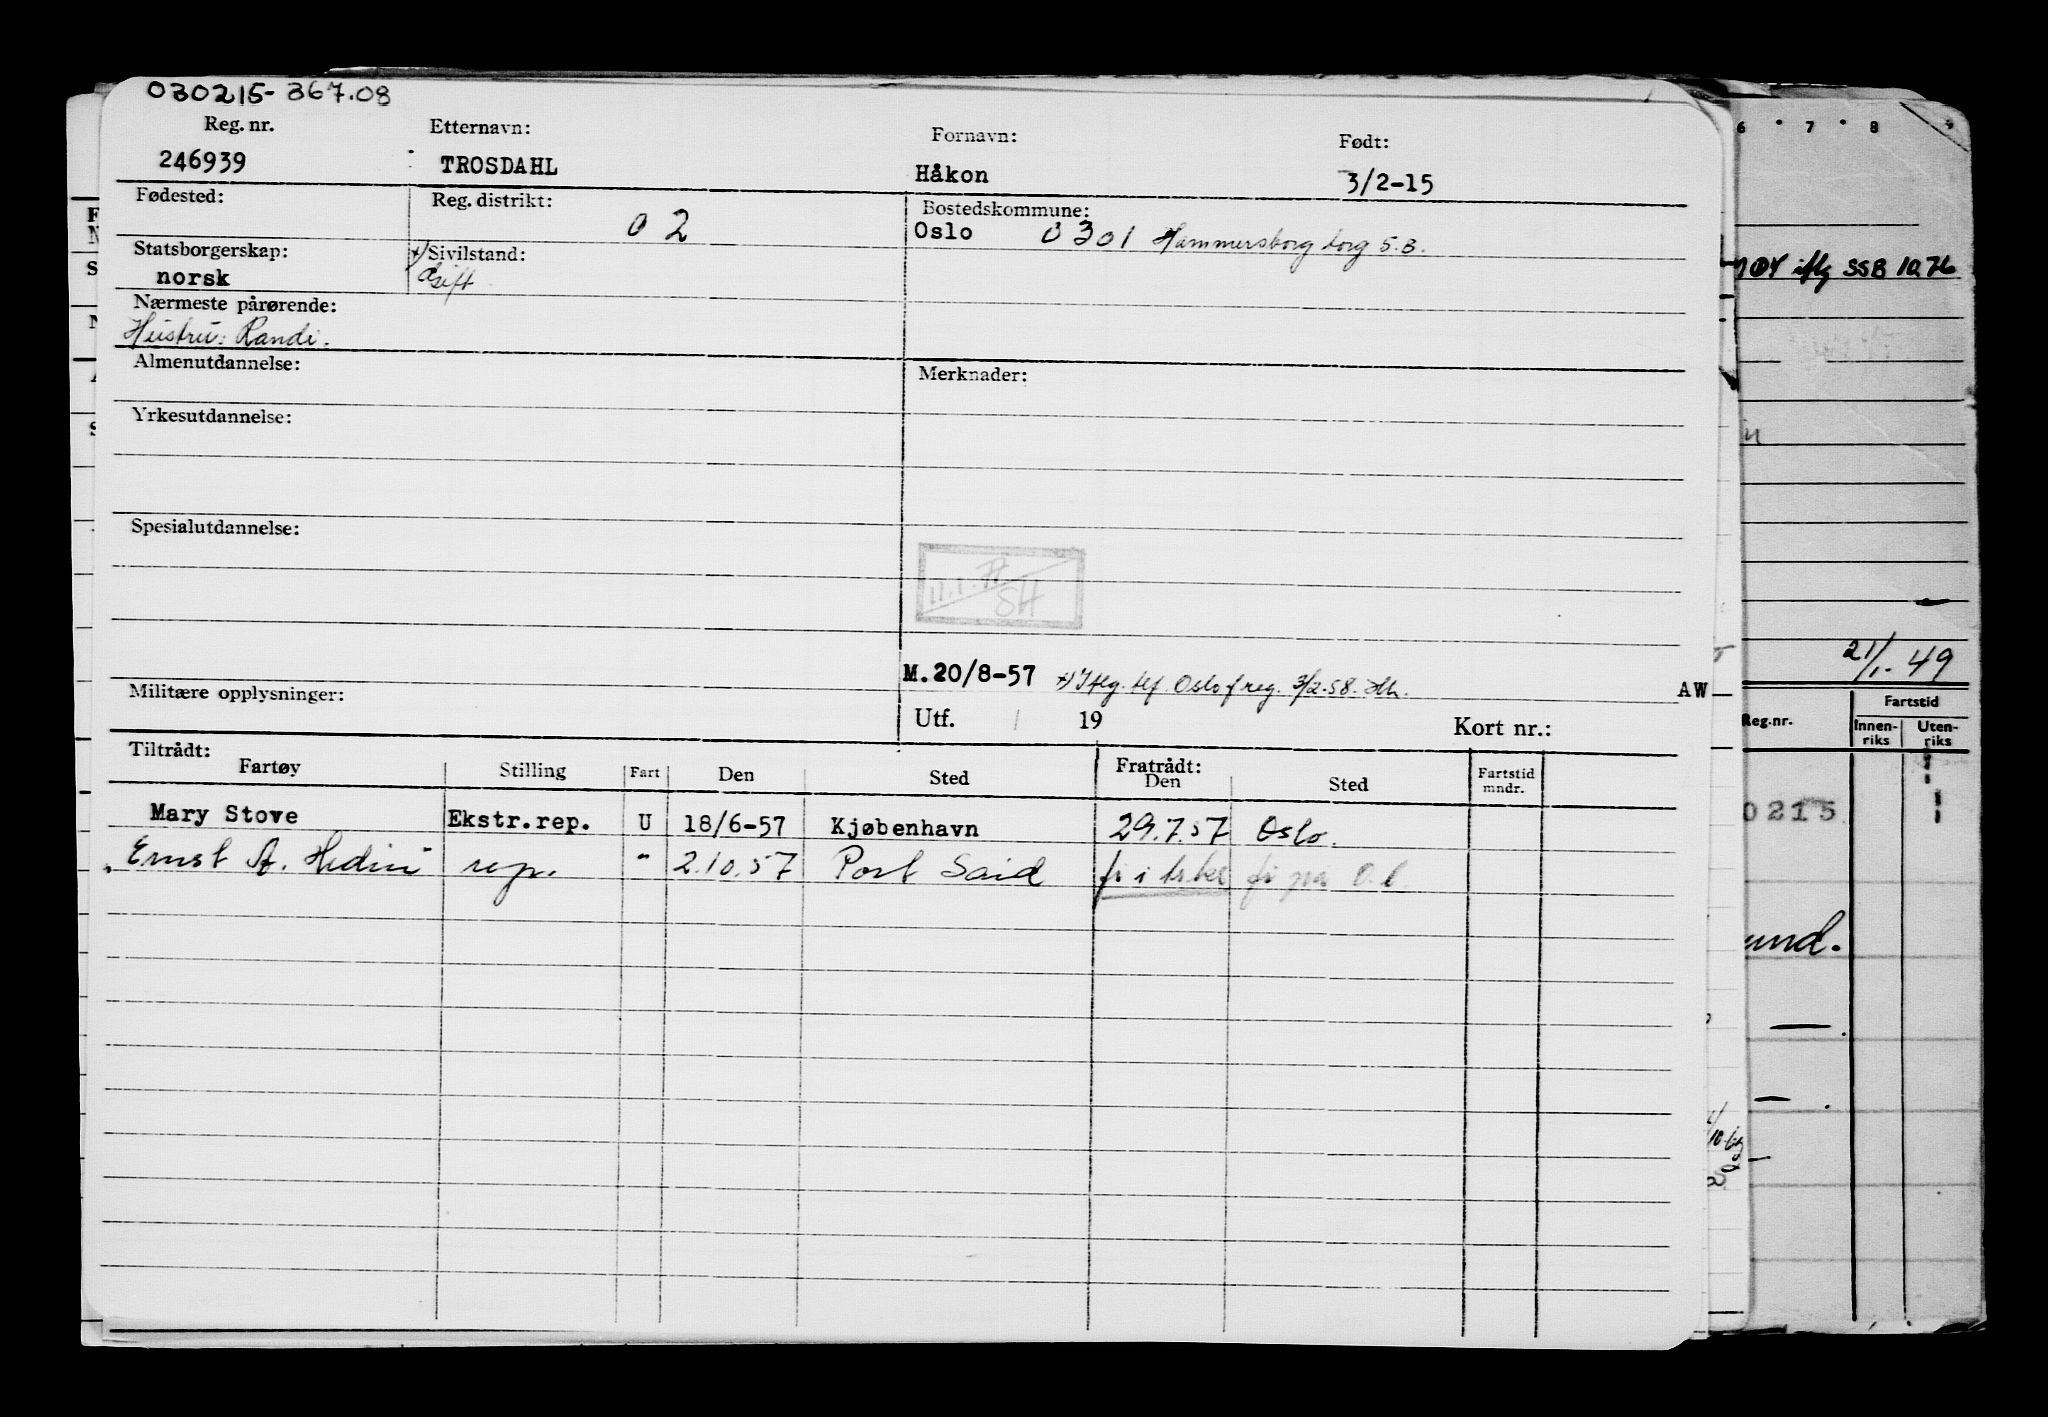 030215-367.08
Reg. nr. Etternavn: Fornavn: Født:
246939 TROSDAHL Håkon 3/2-15
Fødested: Reg. distrikt: 02 Bostedskommune:
Oslo 0301 Hammersborg torg 5.B.
Statsborgerskap: x) Sivilstand:
norsk Gift
Nærmeste pårørende:
Hustru: Randi.
Almenutdannelse: Merknader:
Yrkesutdannelse:
Spesialutdannelse:
11.1.77
SH
M.20/8-57 x) Iflg. tlf. Oslo freg. 3/2-58.
Militære opplysninger: AW
Utf. 19 Kort nr.:
Tiltrådt: Fratrådt:
Fartøy Stilling Fart Den Sted Den Sted Fartstid
mndr.
Mary Stove Ekstr.rep. U 18/6-57 Kjøbenhavn 29.7.57 Oslo.
Ernst A. Hedin rep. " 2.10.57 Port Said
6 7 8 9
iflg SSB 10.76
21/1-49
Reg.nr. Fartstid
Innen-
riks Uten-
riks
0215
und.